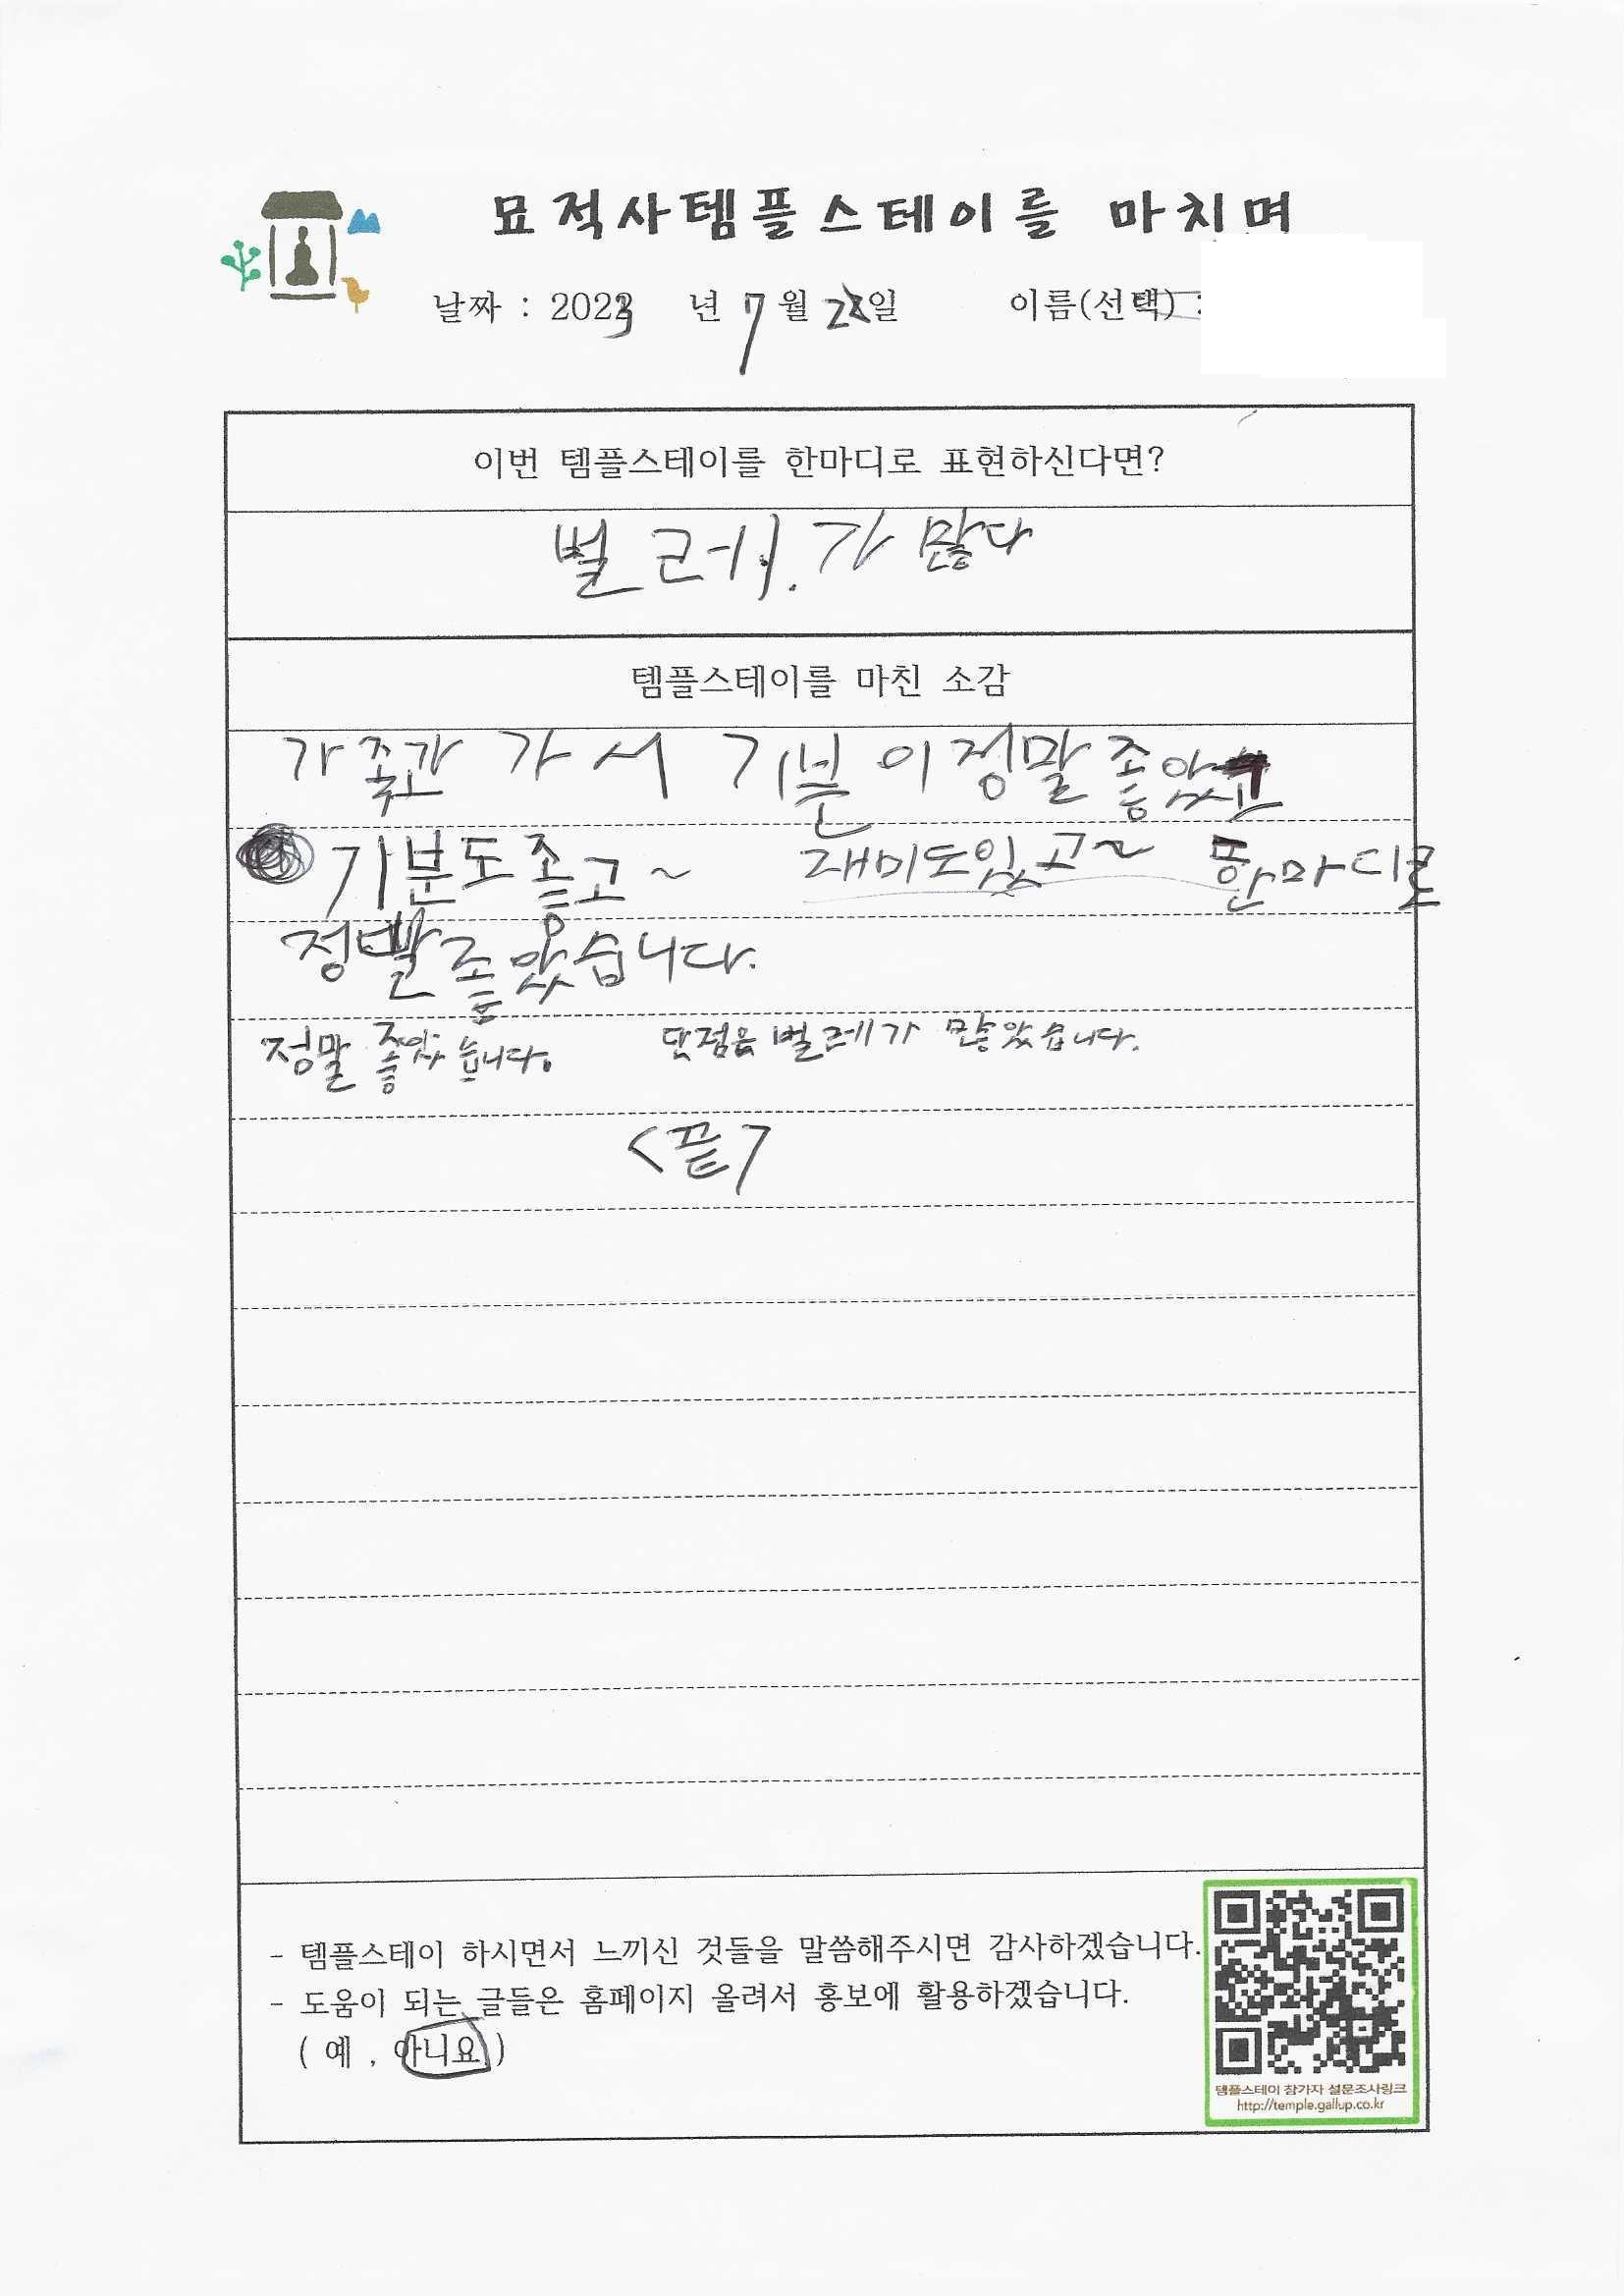 묘적사템플스테이를 마치며
날짜 : 2023 년 7월 22일 이름(선택) :
이번 템플스테이를 한마디로 표현하신다면?
벌레가 많다
템플스테이를 마친 소감
가족과 가서 기분이 정말 좋았고
기분도 좋고~ 재미도있고~ 한마디로
정말 좋았습니다.
정말 좋았습니다. 단점은 벌레가 많았습니다.
<끝>
- 템플스테이 하시면서 느끼신 것들을 말씀해주시면 감사하겠습니다.
- 도움이 되는 글들은 홈페이지 올려서 홍보에 활용하겠습니다.
( 예 , 아니요 )
템플스테이 참가자 설문조사링크
http://temple.gallup.co.kr